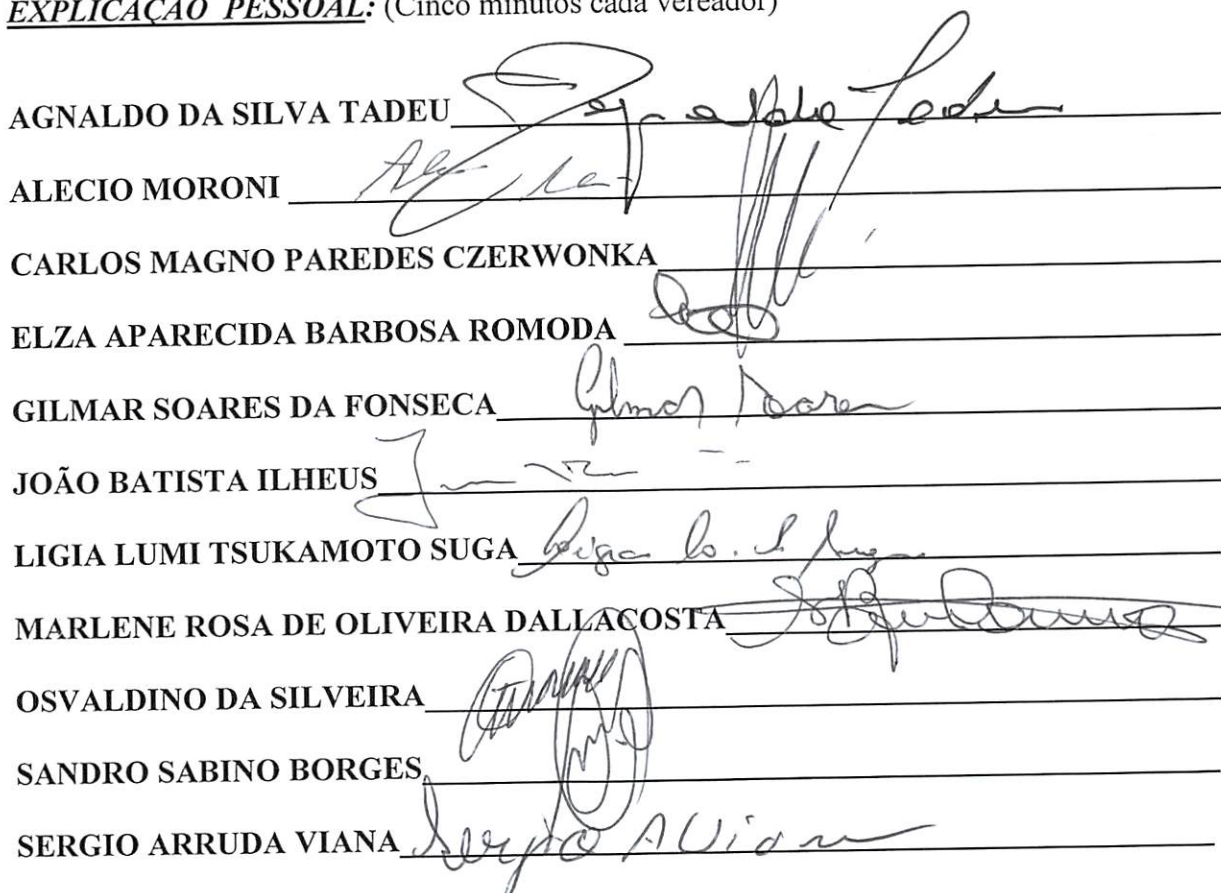 EXPLICAÇÃO PESSOAL: (Cinco minutos cada vereador)
AGNALDO DA SILVA TADEU Agnaldo Tadeu
ALECIO MORONI
CARLOS MAGNO PAREDES CZERWONKA
ELZA APARECIDA BARBOSA ROMODA
GILMAR SOARES DA FONSECA Gilmar Soares
JOÃO BATISTA ILHEUS
LIGIA LUMI TSUKAMOTO SUGA Ligia
MARLENE ROSA DE OLIVEIRA DALLACOSTA
OSVALDINO DA SILVEIRA
SANDRO SABINO BORGES
SERGIO ARRUDA VIANA Sergio A Viana